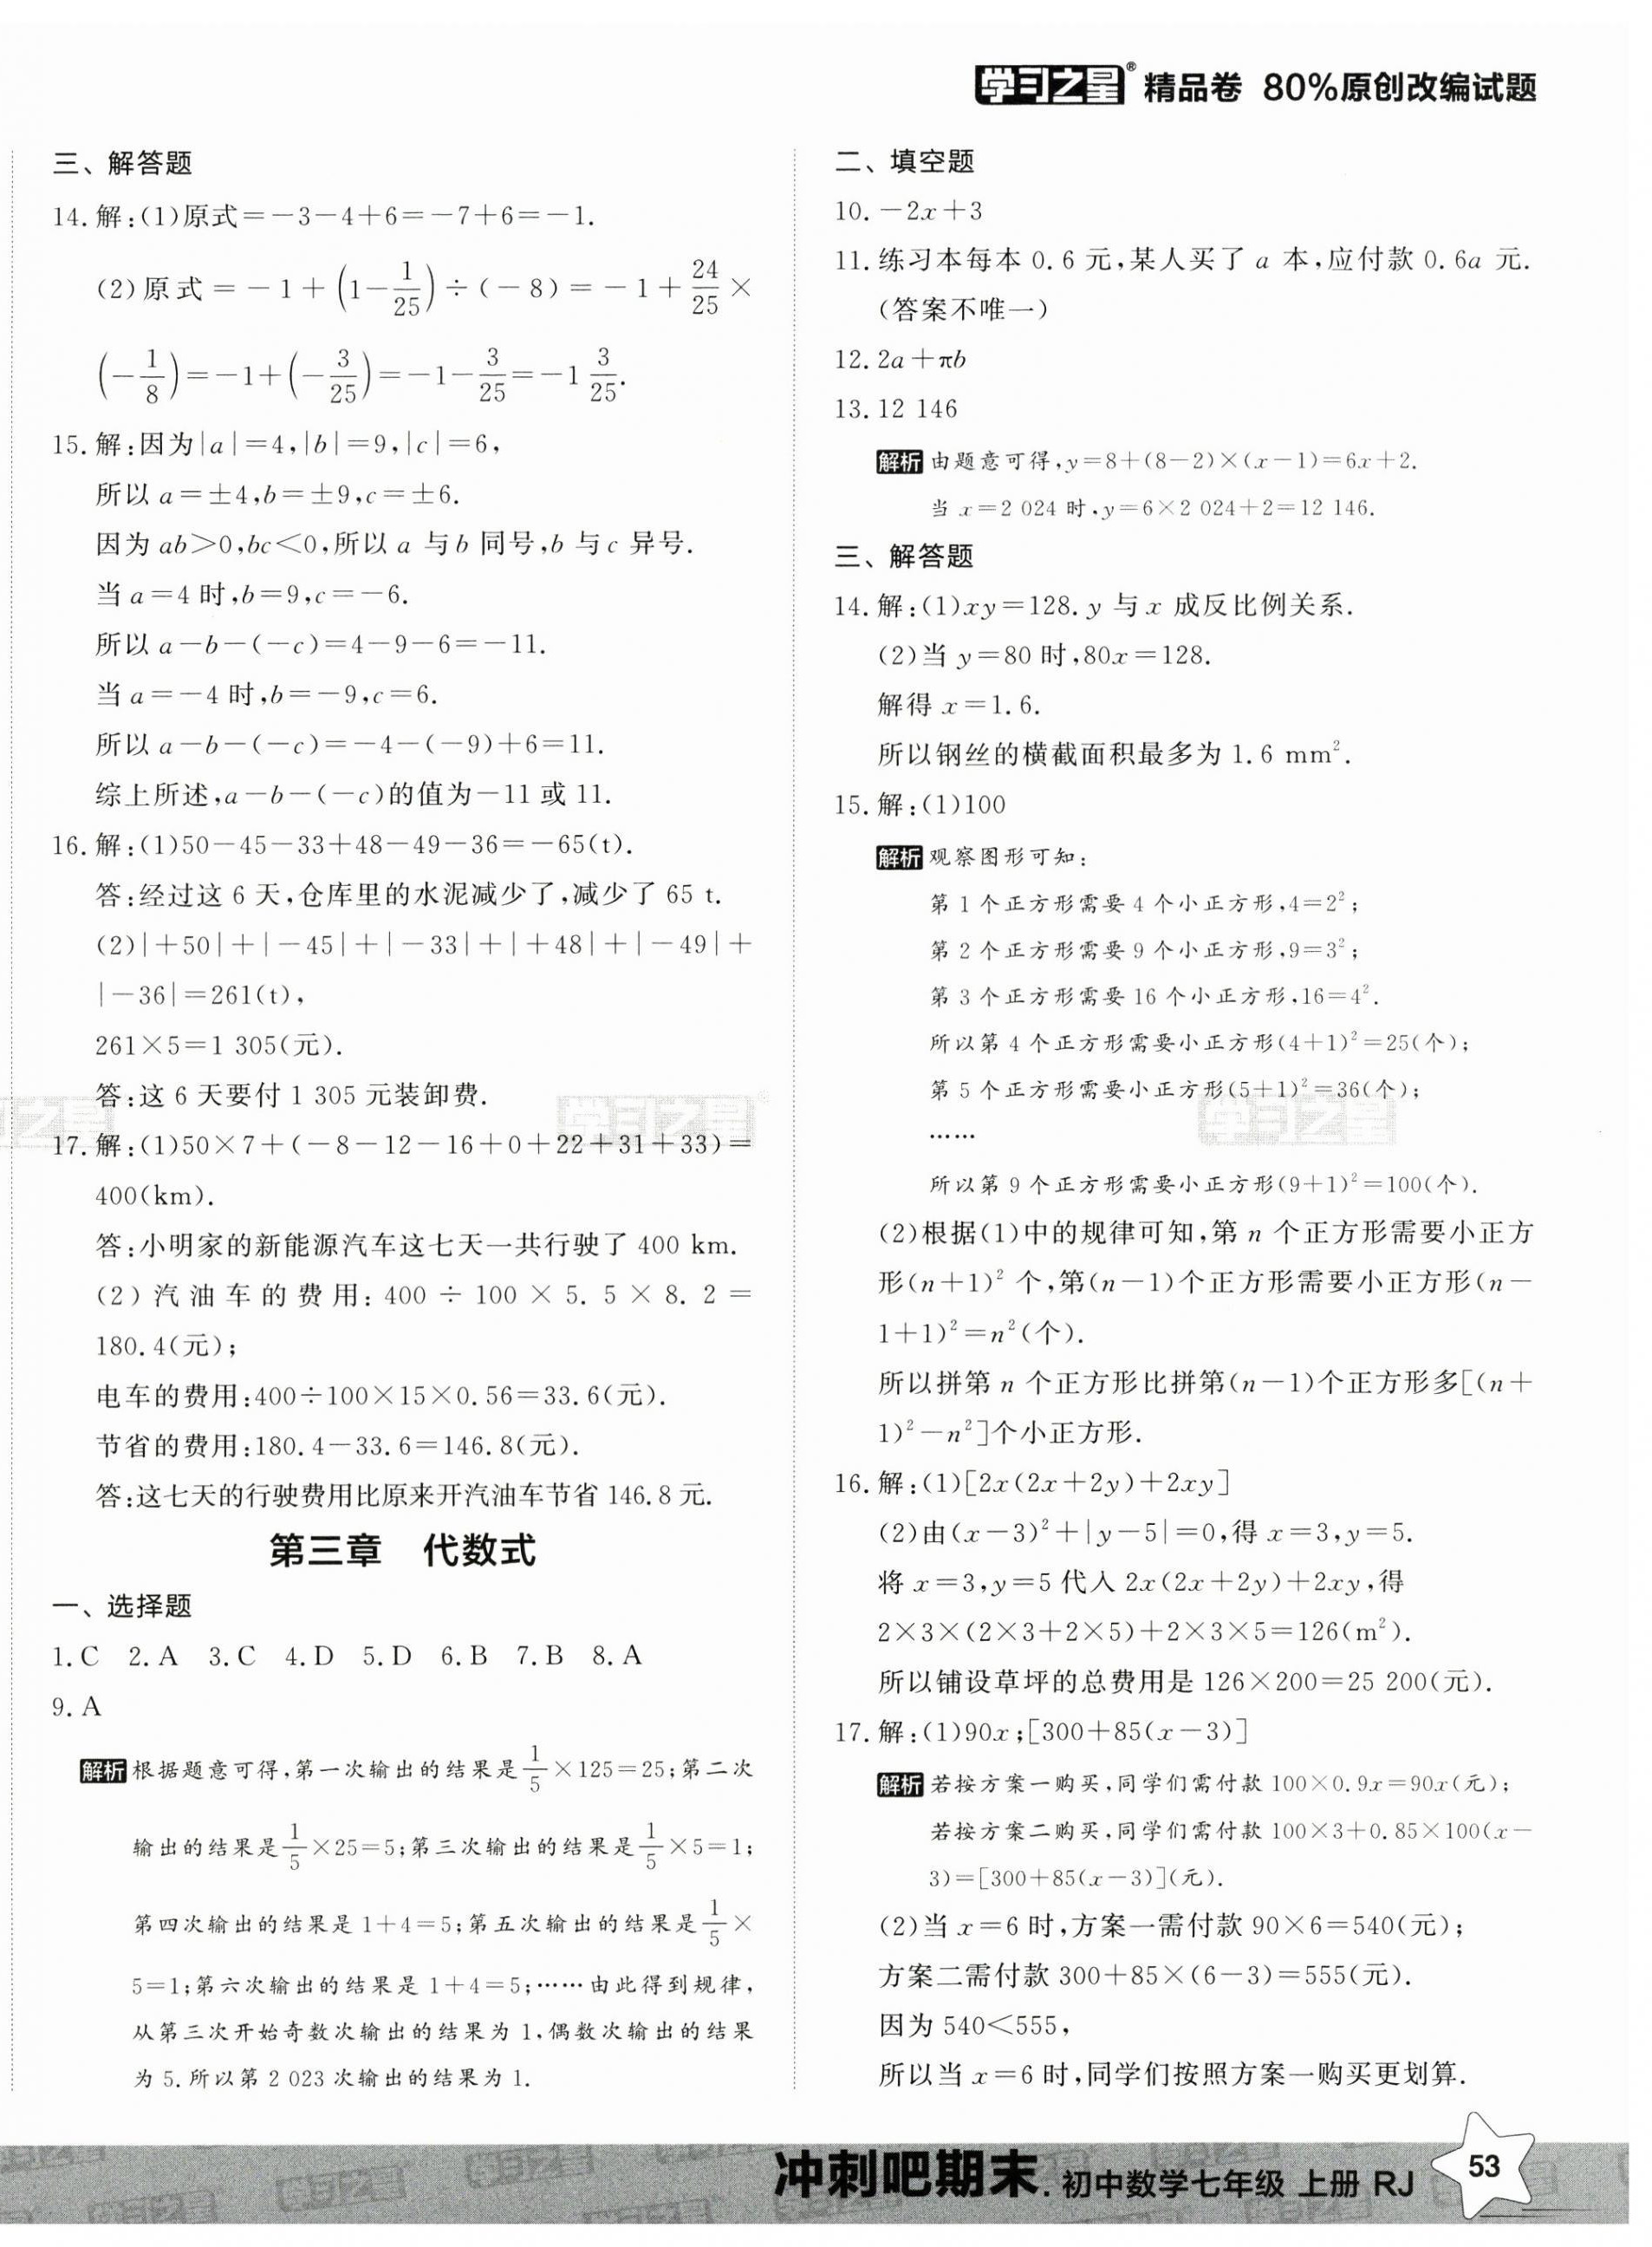 学习之星® 精品卷 80%原创改编试题
三、解答题
14. 解:(1)原式=-3-4+6=-7+6=-1.
(2)原式=-1+(1-1/25)÷(-8)=-1+24/25×
(-1/8)=-1+(-3/25)=-1-3/25=-1 3/25.
15. 解:因为|a|=4,|b|=9,|c|=6,
所以 a=±4,b=±9,c=±6.
因为 ab>0,bc<0,所以 a 与 b 同号,b 与 c 异号.
当 a=4 时,b=9,c=-6.
所以 a-b-(-c)=4-9-6=-11.
当 a=-4 时,b=-9,c=6.
所以 a-b-(-c)=-4-(-9)+6=11.
综上所述,a-b-(-c)的值为-11 或 11.
16. 解:(1)50-45-33+48-49-36=-65(t).
答:经过这 6 天,仓库里的水泥减少了,减少了 65 t.
(2)|+50|+|-45|+|-33|+|+48|+|-49|+
|-36|=261(t),
261×5=1 305(元).
答:这 6 天要付 1 305 元装卸费.
17. 解:(1)50×7+(-8-12-16+0+22+31+33)=
400(km).
答:小明家的新能源汽车这七天一共行驶了 400 km.
(2)汽油车的费用:400÷100×5.5×8.2=
180.4(元);
电车的费用:400÷100×15×0.56=33.6(元).
节省的费用:180.4-33.6=146.8(元).
答:这七天的行驶费用比原来开汽油车节省 146.8 元.
第三章 代数式
一、选择题
1. C 2. A 3. C 4. D 5. D 6. B 7. B 8. A
9. A
解析 根据题意可得,第一次输出的结果是1/5×125=25;第二次
输出的结果是1/5×25=5;第三次输出的结果是1/5×5=1;
第四次输出的结果是 1+4=5;第五次输出的结果是1/5×
5=1;第六次输出的结果是 1+4=5;……由此得到规律,
从第三次开始奇数次输出的结果为 1,偶数次输出的结果
为 5.所以第 2 023 次输出的结果为 1.
二、填空题
10. -2x+3
11. 练习本每本 0.6 元,某人买了 a 本,应付款 0.6a 元.
(答案不唯一)
12. 2a+πb
13. 12 146
解析 由题意可得,y=8+(8-2)×(x-1)=6x+2.
当 x=2 024 时,y=6×2 024+2=12 146.
三、解答题
14. 解:(1)xy=128. y 与 x 成反比例关系.
(2)当 y=80 时,80x=128.
解得 x=1.6.
所以钢丝的横截面积最多为 1.6 mm².
15. 解:(1)100
解析 观察图形可知:
第 1 个正方形需要 4 个小正方形,4=2²;
第 2 个正方形需要 9 个小正方形,9=3²;
第 3 个正方形需要 16 个小正方形,16=4².
所以第 4 个正方形需要小正方形(4+1)²=25(个);
第 5 个正方形需要小正方形(5+1)²=36(个);
……
所以第 9 个正方形需要小正方形(9+1)²=100(个).
(2)根据(1)中的规律可知,第 n 个正方形需要小正方
形(n+1)² 个,第(n-1)个正方形需要小正方形(n-
1+1)²=n²(个).
所以拼第 n 个正方形比拼第(n-1)个正方形多[(n+
1)²-n²]个小正方形.
16. 解:(1)[2x(2x+2y)+2xy]
(2)由(x-3)²+|y-5|=0,得 x=3,y=5.
将 x=3,y=5 代入 2x(2x+2y)+2xy,得
2×3×(2×3+2×5)+2×3×5=126(m²).
所以铺设草坪的总费用是 126×200=25 200(元).
17. 解:(1)90x;[300+85(x-3)]
解析 若按方案一购买,同学们需付款 100×0.9x=90x(元);
若按方案二购买,同学们需付款 100×3+0.85×100(x-
3)=[300+85(x-3)](元).
(2)当 x=6 时,方案一需付款 90×6=540(元);
方案二需付款 300+85×(6-3)=555(元).
因为 540<555,
所以当 x=6 时,同学们按照方案一购买更划算.
冲刺吧期末.初中数学七年级 上册 RJ 53